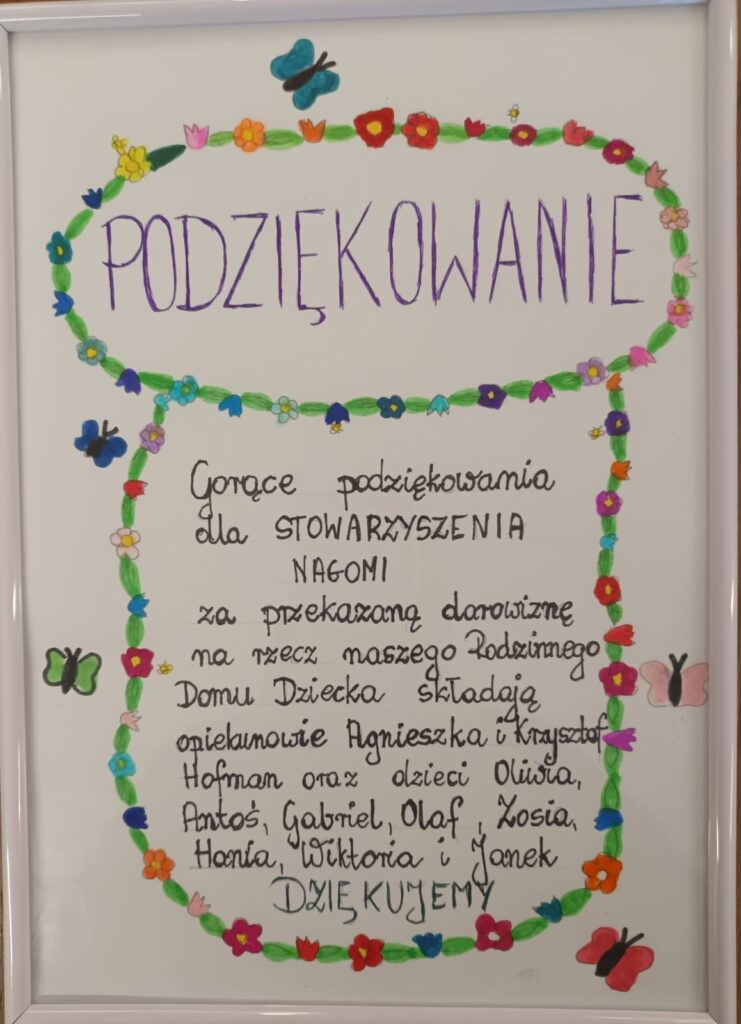 PODZIĘKOWANIE
Gorące podziękowania
dla STOWARZYSZENIA
NAGOMI
za przekazaną darowiznę
na rzecz naszego Rodzinnego
Domu Dziecka składają
opiekunowie Agnieszka i Krzysztof
Hofman oraz dzieci Oliwia,
Antoś, Gabriel, Olaf, Zosia,
Hania, Wiktoria i Janek
DZIĘKUJEMY